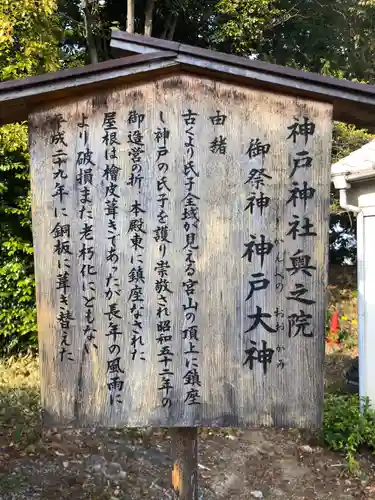 神戸神社奥之院
御祭神 神戸大神
かんべのおおかみ
由緒
古くより氏子全域が見える宮山の頂上に鎮座
し神戸の氏子を護り崇敬され昭和五十二年の
御造営の折、本殿東に鎮座なされた
屋根は檜皮葺きであったが長年の風雨に
より破損また老朽化にともない
平成二九年に銅板に葺き替えた